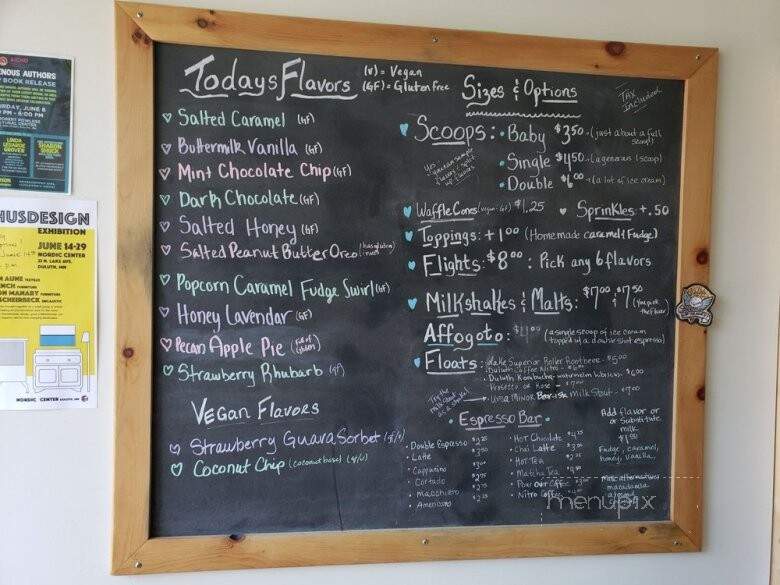 ENOUS AUTHORS
BOOK RELEASE
HUSDESIGN
EXHIBITION
JUNE 14-29
NORDIC CENTER
DULUTH, MN
NORDIC CENTER
Todays Flavors
(V) = Vegan
(GF) = Gluten Free
Salted Caramel (GF)
Buttermilk Vanilla (GF)
Mint Chocolate Chip (GF)
Dark Chocolate (GF)
Salted Honey (GF)
Salted Peanut Butter Oreo
Popcorn Caramel Fudge Swirl (GF)
Honey Lavendar (GF)
Pecan Apple Pie
Strawberry Rhubarb (GF)
Vegan Flavors
Strawberry Guava Sorbet
Coconut Chip (coconut base)
Sizes & Options
TAX
Included
Scoops: • Baby $3.50 - (just about a full scoop!)
• Single $4.50 - (a generous 1 scoop)
• Double $6.00 (a lot of ice cream)
Waffle Cones $1.25
Sprinkles: +.50
Toppings: +1.00 (Homemade caramel & Fudge)
Flights: $8.00 : Pick any 6 flavors
Milkshakes & Malts: $7.00 & 7.50 (You pick the flavor)
Affogoto:
(a single scoop of ice cream
topped w/ a double shot espresso)
Floats: - Lake Superior Roller Rootbeer $5.00
Duluth Coffee Nitro
Duluth Kombucha - watermelon hibiscus $6.00
Prosecco or Rose - $7.00
Ursa Minor Bear-ish Milk Stout - $7.00
Espresso Bar
• Double Espresso
• Latte
• Cappuccino
• Cortado
• Macchiato
• Americano
• Hot Chocolate
• Chai Latte
• Hot Tea
• Matcha Tea
• Pour Over Coffee
• Nitro Coffee
Add flavor or
or Substitute
milk
Fudge, caramel,
honey, vanilla
Milk alternatives
macadamia
menupix